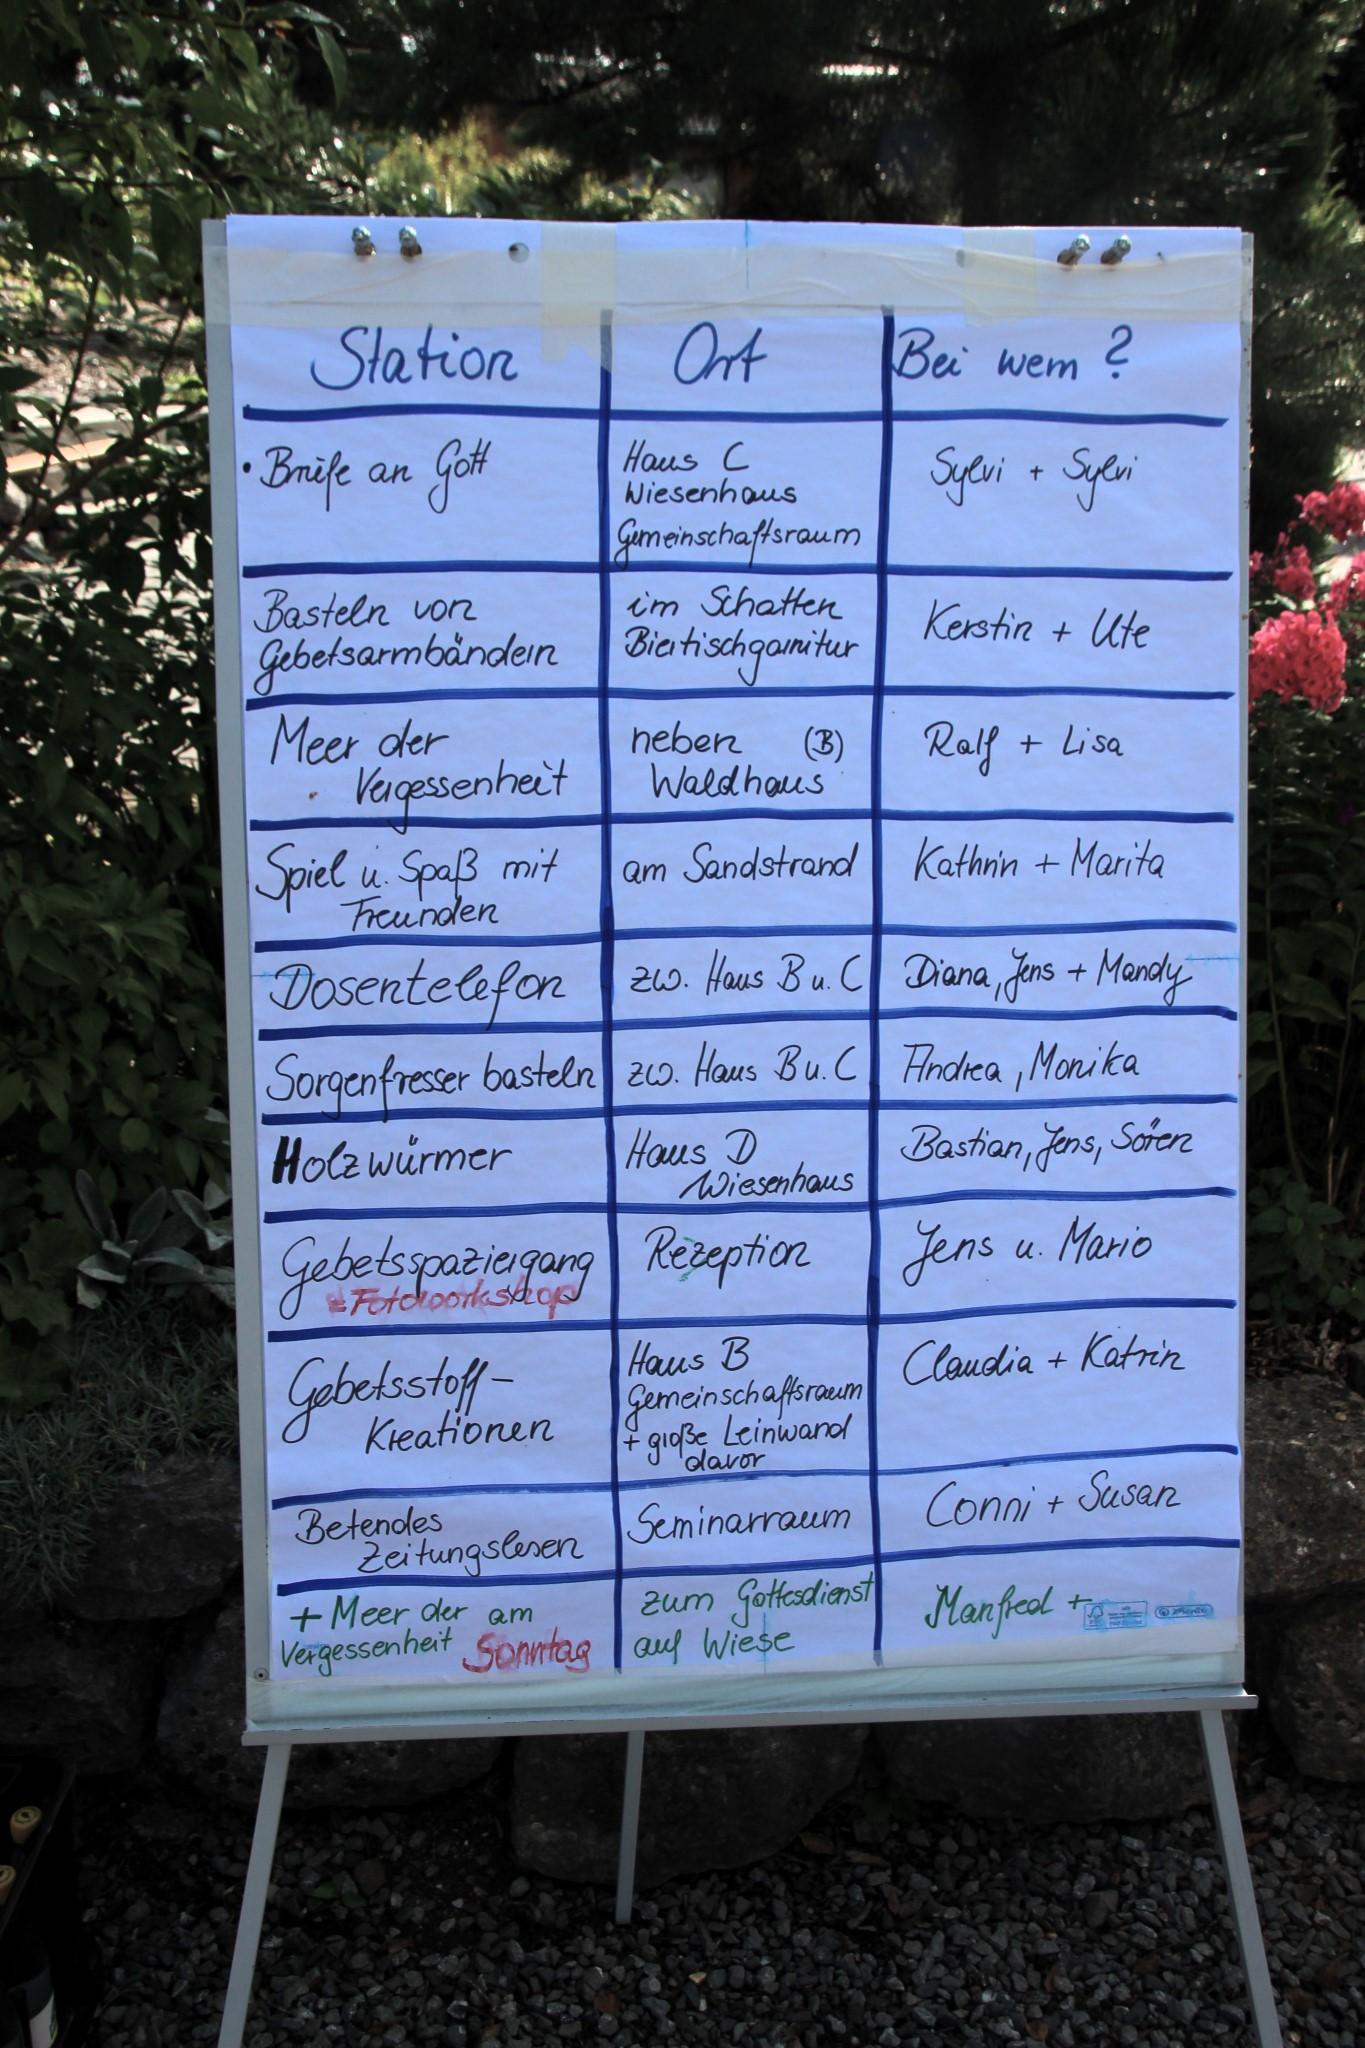 Station Ort Bei wem?
• Briefe an Gott
Haus C
Wiesenhaus
Gemeinschaftsraum
Sylvi + Sylvi
Basteln von
Gebetsarmbändern
im Schatten
Biertischgarnitur
Kerstin + Ute
Meer der
Vergessenheit
neben (B)
Waldhaus
Ralf + Lisa
Spiel u. Spaß mit
Freunden
am Sandstrand
Kathrin + Marita
Dosentelefon
zw. Haus B u. C
Diana, Jens + Mandy
Sorgenfresser basteln
zw. Haus B u. C
Andrea, Monika
Holzwürmer
Haus D
Wiesenhaus
Bastian, Jens, Sören
Gebetsspaziergang
= Fotoworkshop
Rezeption
Jens u. Mario
Gebetsstoff-
Kreationen
Haus B
Gemeinschaftsraum
+ große Leinwand
davor
Claudia + Katrin
Betendes
Zeitungslesen
Seminarraum
Conni + Susan
+ Meer der am
Vergessenheit Sonntag
zum Gottesdienst
auf Wiese
Manfred +